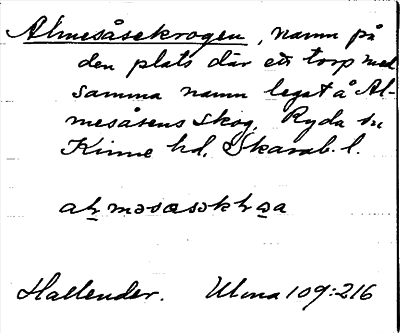 Almesåsekrogen, namn på
den plats där ett torp med
samma namn legat å Al-
mesåsens skog. Ryda sn
Kinne hd. Skarab. l.
Hallender. Ulma 109:216